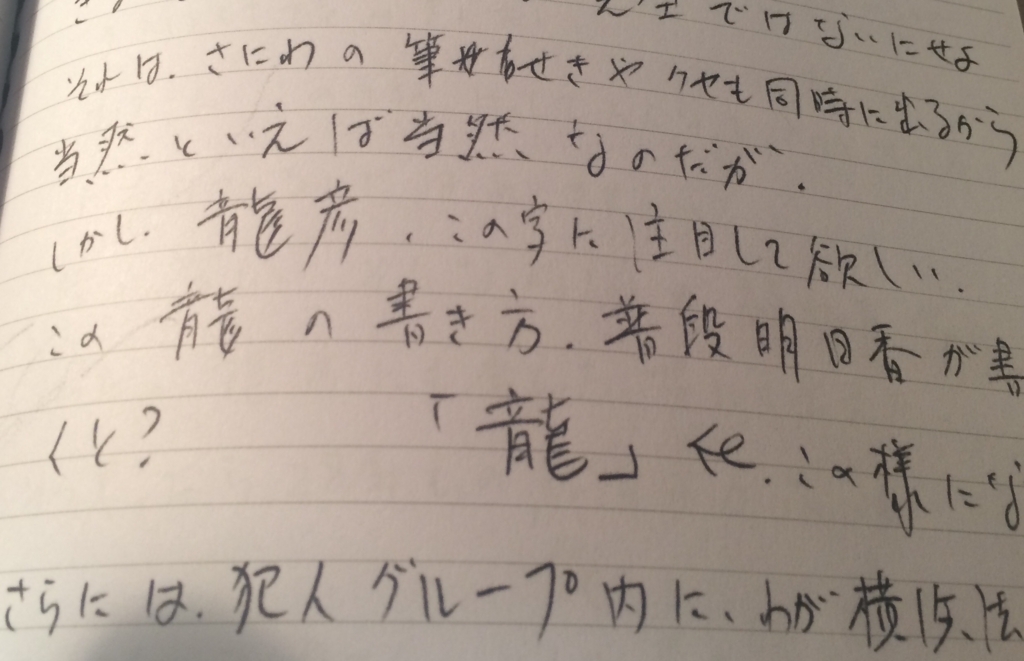 ではないにせよ
それは、さにわの筆せきやクセも同時に出るから
当然といえば当然なのだが、
しかし、龍彦、この字に注目して欲しい、
この龍の書き方、普段明日香が書
くと? 「龍」くと、この様にな
さらには、犯人グループ内に、わが